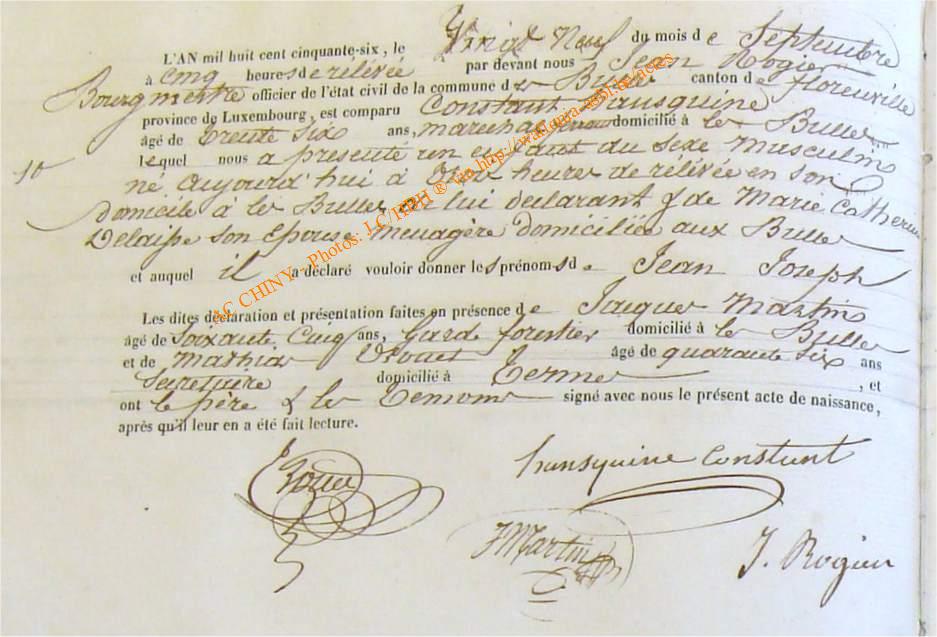 L'AN mil huit cent cinquante-six, le Vingt Neuf du mois de Septembre
à cinq heures de rélévée par devant nous Jean Rogier
Bourgmestre officier de l'état civil de la commune de Les Bulles canton de Florenville
province de Luxembourg, est comparu Constant hansquine
âgé de trente six ans, marechal domicilié à les Bulles
lequel nous a presenté un enfant du sexe Musculin
né aujourd'hui à heures de rélévée en son
domicile à les Bulles de lui déclarant & de Marie Catherine
Delaisse son Epouse menagère domiciliée aux Bulles
10
et auquel il a déclaré vouloir donner les prénoms de Jean Joseph
Les dites déclaration et présentation faites en présence de Jacques Martin
âgé de Soixante Cinq ans, Gard forestier domicilié à les Bulles
et de Mathias âgé de quarante six ans
Secretaire domicilié à Termes, et
ont le père & les Temoins signé avec nous le présent acte de naissance,
après qu'il leur en a été fait lecture.
hansquine Constant
J Martin
J. Rogier
AC CHINY - Photos: J.C HBH ® via http://wallonia-asbl.be/actes